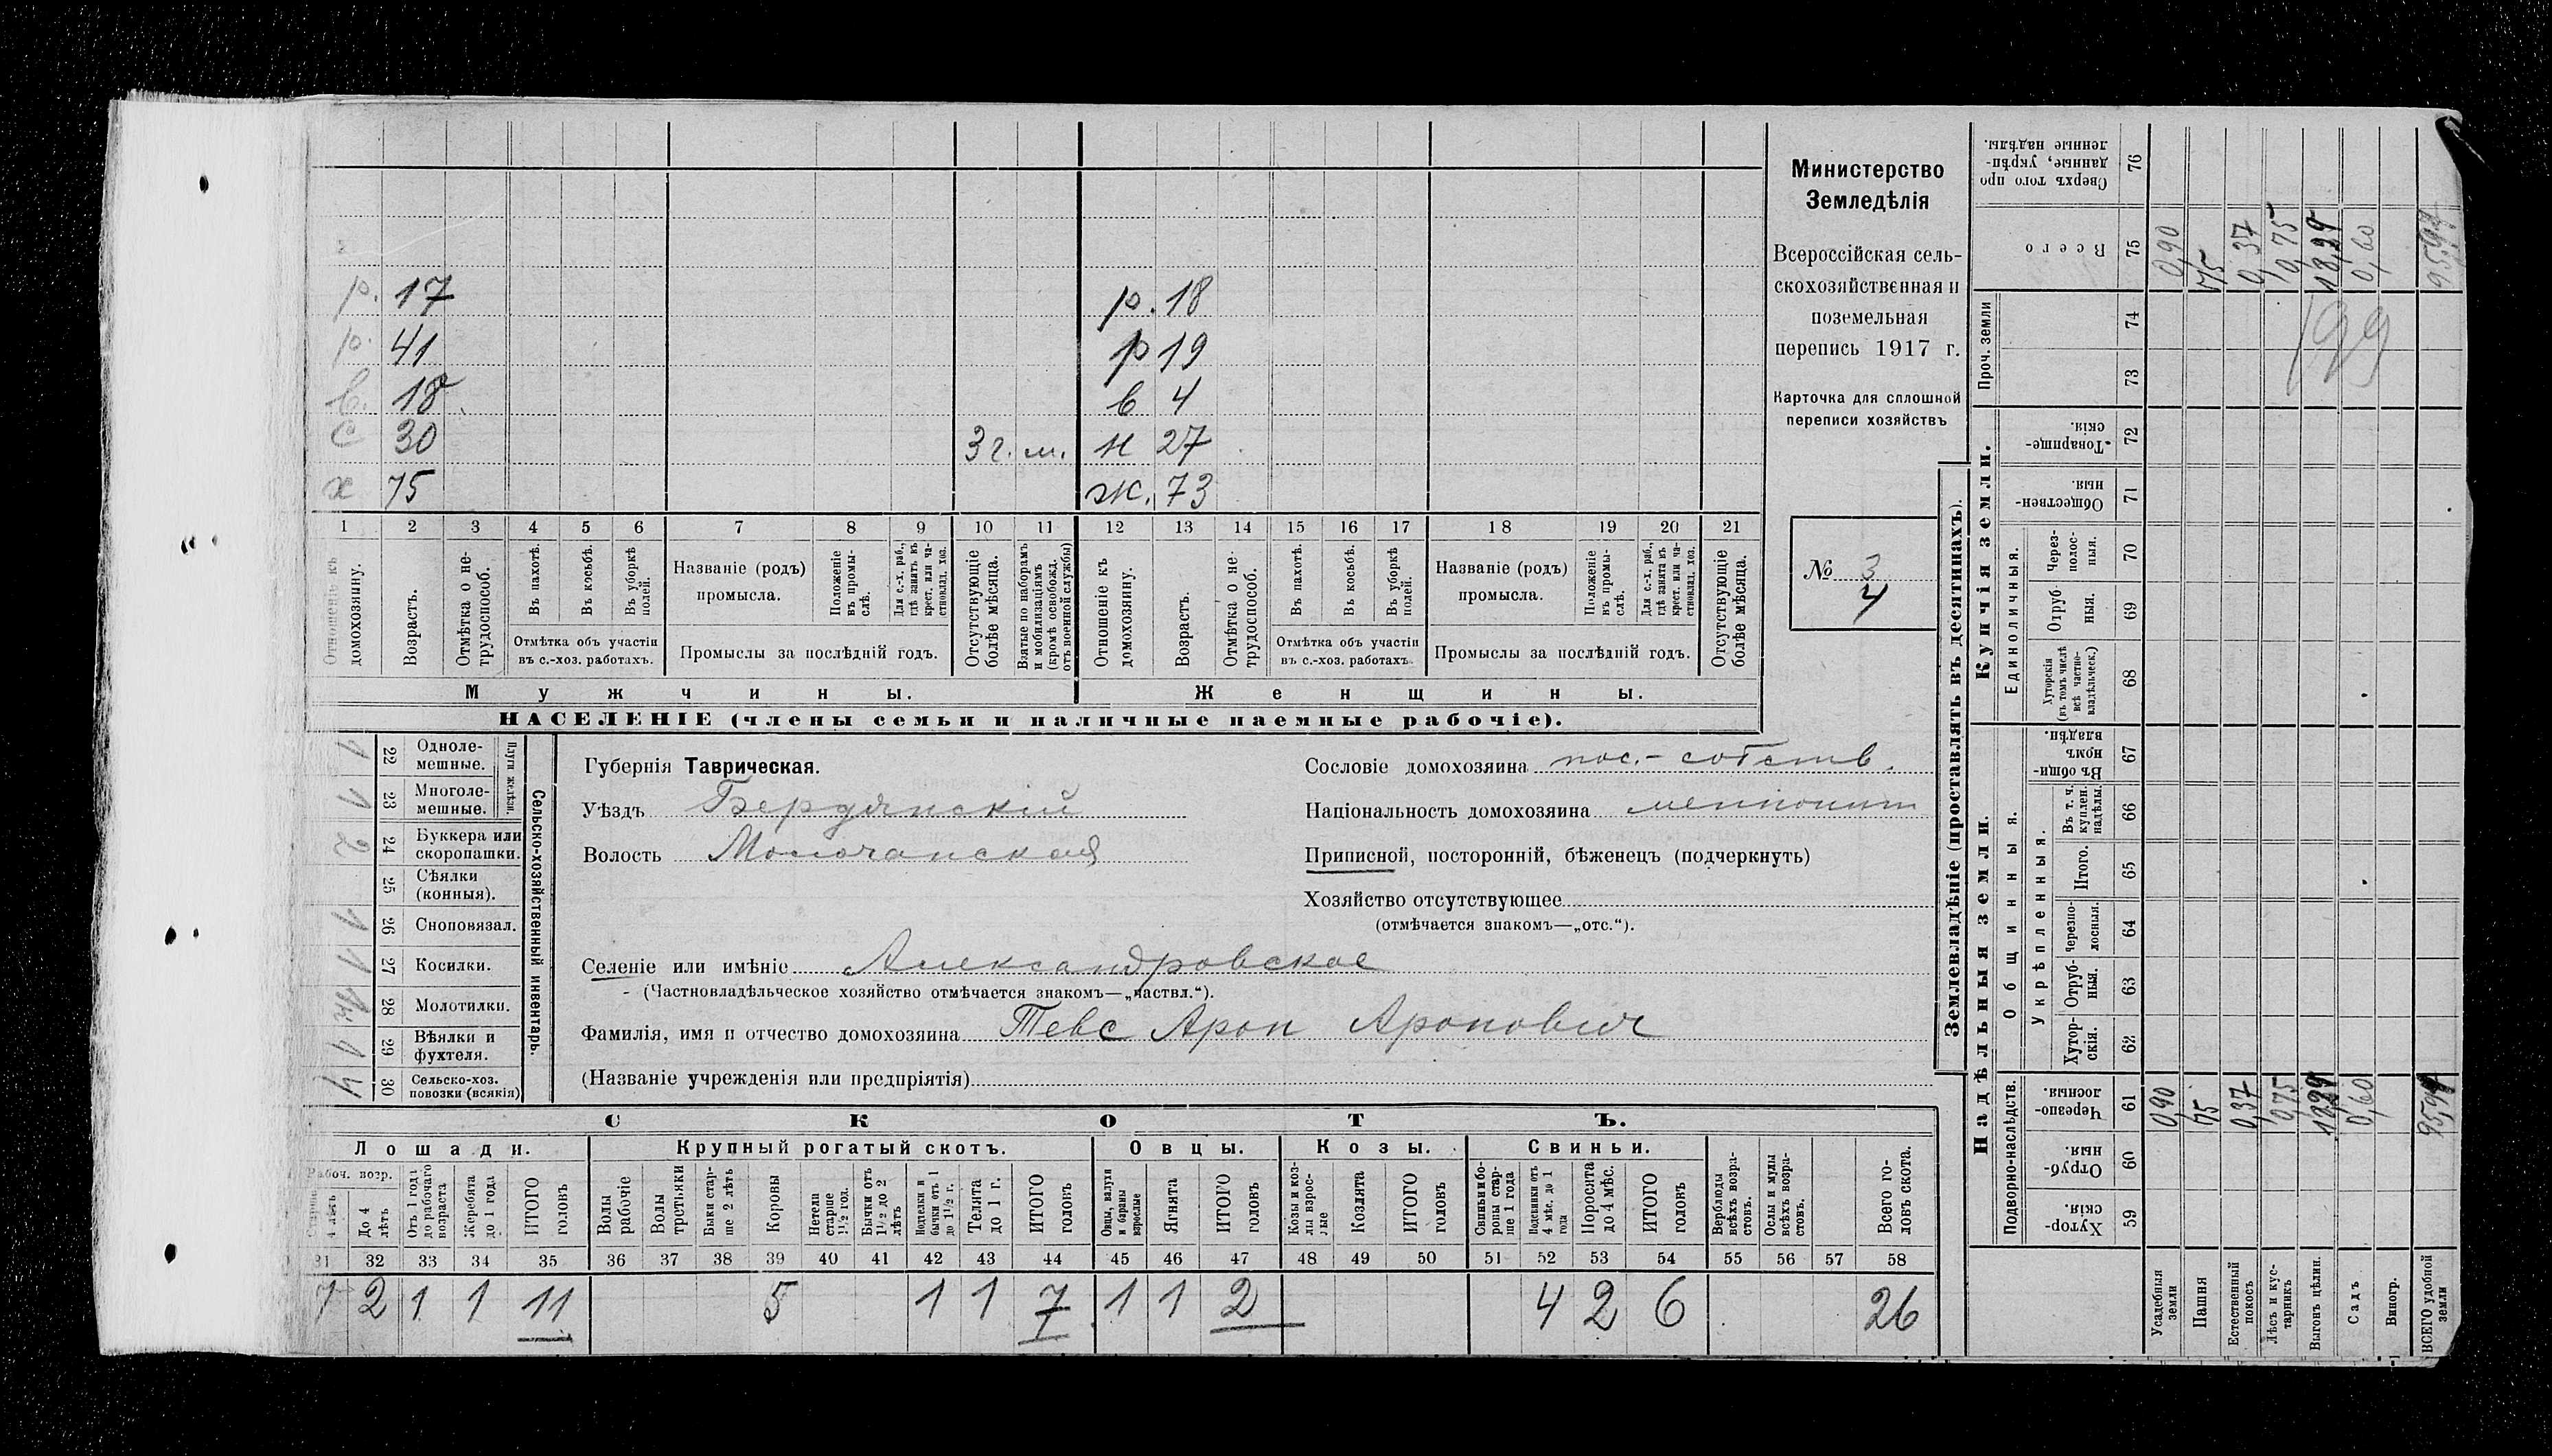 р. 17 р. 18
р. 41 р 19
в. 18 в 4
с 30 3 г. м. н 27
х 75 ж. 73
1 2 3 4 5 6 7 8 9 10 11 12 13 14 15 16 17 18 19 20 21
Отношеніе къ домохозяину.
Возрастъ.
Отмѣтка о не-
трудоспособ.
Въ пахотѣ.
Въ косьбѣ.
Въ уборкѣ
полей.
Отмѣтка объ участіи
въ с.-хоз. работахъ.
Названіе (родъ)
промысла.
Положеніе
въ промы-
слѣ.
Для с.-х. раб.,
гдѣ занятъ въ
крест. или ча-
стновлад. хоз.
Промыслы за послѣдній годъ.
Отсутствующіе
болѣе мѣсяца.
Взятые по наборамъ
и мобилизаціямъ
(кромѣ освобожд.
отъ военной службы)
Отношеніе къ
домохозяину.
Возрастъ.
Отмѣтка о не-
трудоспособ.
Въ пахотѣ.
Въ косьбѣ.
Въ уборкѣ
полей.
Отмѣтка объ участіи
въ с.-хоз. работахъ.
Названіе (родъ)
промысла.
Положеніе
въ промы-
слѣ.
Для с.-х. раб.,
гдѣ занята въ
крест. или ча-
стновлад. хоз.
Промыслы за послѣдній годъ.
Отсутствующіе
болѣе мѣсяца.
Мужчины. Женщины.
НАСЕЛЕНІЕ (члены семьи и наличные наемные рабочіе).
Министерство
Земледѣлія
Всероссійская сель-
скохозяйственная и
поземельная
перепись 1917 г.
Карточка для сплошной
переписи хозяйствъ
№ 3
4
Сельско-хозяйственный инвентарь.
Плуги желѣзн.
1 22 Одноле-
мешные.
1 23 Многоле-
мешные.
2 24 Буккера или
скоропашки.
25 Сѣялки
(конныя).
1 26 Сноповязал.
1 27 Косилки.
28 Молотилки.
1 29 Вѣялки и
фухтеля.
4 30 Сельско-хоз.
повозки (всякія)
Губернія Таврическая.
Уѣздъ Бердянскій
Волость Молочанская
Сословіе домохозяина пос.-собств.
Національность домохозяина меннонит
Приписной, посторонній, бѣженецъ (подчеркнуть)
Хозяйство отсутствующее
(отмѣчается знакомъ—„отс.“).
Селеніе или имѣніе Александровское
(Частновладѣльческое хозяйство отмѣчается знакомъ—„частвл.“).
Фамилія, имя и отчество домохозяина Тевс Арон Аронович
(Названіе учрежденія или предпріятія)
СКОТЪ.
Лошади. Крупный рогатый скотъ. Овцы. Козы. Свиньи.
Рабоч. возр.
Старше
4 лѣтъ
До 4
лѣтъ
Отъ 1 года
до рабочаго
возраста
Жеребята
до 1 года
ИТОГО
головъ
Волы
рабочіе
Волы
третьяки
Быки стар-
ше 2 лѣтъ
Коровы
Нетели
старше
1½ год.
Бычки отъ
1½ до 2
лѣтъ
Подтелки и
бычки отъ 1
до 1½ г.
Телята
до 1 г.
ИТОГО
головъ
Овцы, валухи
и бараны
взрослые
Ягнята
ИТОГО
головъ
Козы и коз-
лы взрос-
лые
Козлята
ИТОГО
головъ
Свиньи и бо-
ровы стар-
ше 1 года
Подсвинки отъ
4 мѣс. до 1
года
Поросята
до 4 мѣс.
ИТОГО
головъ
Верблюды
всѣхъ возра-
стовъ.
Ослы и мулы
всѣхъ возра-
стовъ.
Всего го-
ловъ скота.
31 32 33 34 35 36 37 38 39 40 41 42 43 44 45 46 47 48 49 50 51 52 53 54 55 56 57 58
7 2 1 1 11 5 1 1 7 1 1 2 4 2 6 26
Землевладѣніе (проставлять въ десятинахъ).
Надѣльныя земли. Купчія земли. Проч. земли
Подворно-наслѣдств. Общинныя. Единоличныя.
Укрѣпленныя.
Хутор-
скія.
Отруб-
ныя.
Черезпо-
лосныя.
Хутор-
скія.
Отруб-
ныя.
Черезпо-
лосныя.
Итого.
Въ т. ч.
куплен.
надѣлы.
Въ общи-
номъ
владѣн.
Хуторскія
(въ томъ числѣ
всѣ частно-
владѣльческ.)
Отруб-
ныя.
Через-
полос-
ныя.
Обществен-
ныя.
Товарище-
скія.
Всего
Сверхъ того про
данные, укрѣп-
ленные надѣлы.
59 60 61 62 63 64 65 66 67 68 69 70 71 72 73 74 75 76
Усадебныя
земли 0,90 0,90
Пашня 75 75
Естественный
покосъ 0,37 0,37
Лѣсъ и кус-
тарникъ 0,75 0,75
Выгонъ цѣлин. 18,29 18,29
Садъ 0,60 0,60
Виногр.
ВСЕГО удобной
земли
199